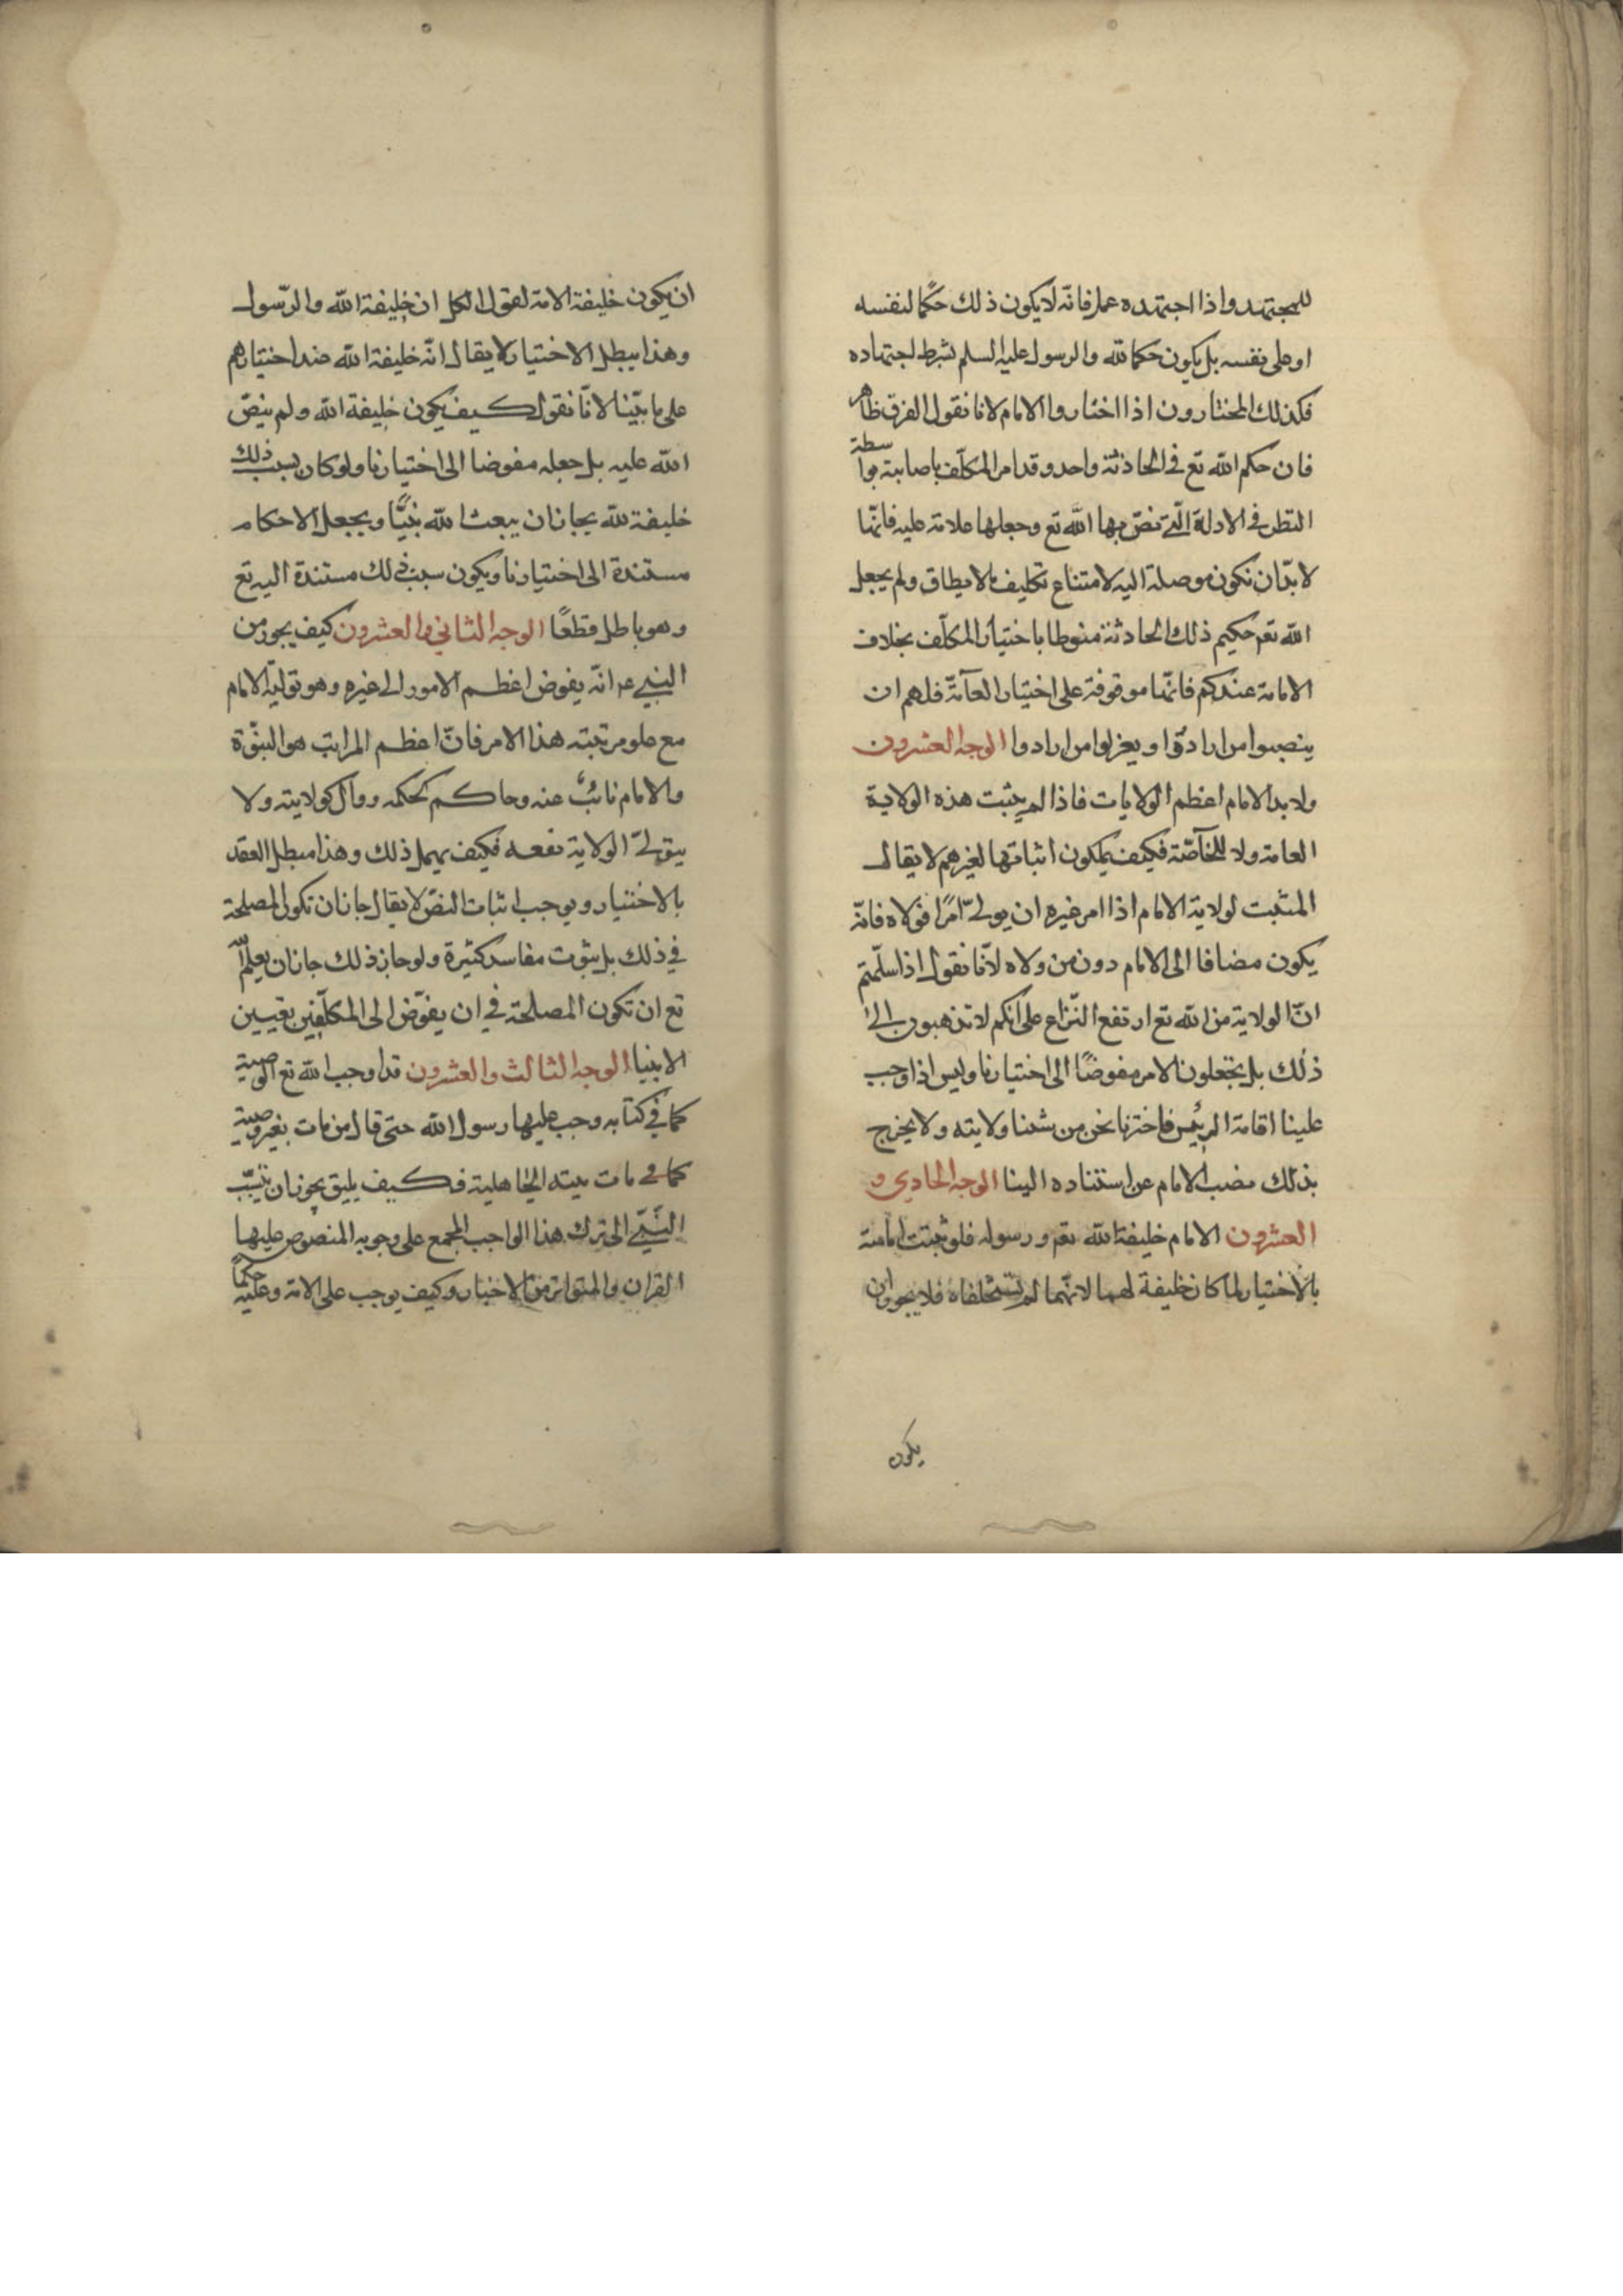 للمجتهد واذا اجتهده عمل فانّه لا يكون ذلك حكمًا لنفسه
او على نفسه بل يكون حكما لله والرسول عليه السلم بشرط اجتهاده
فكذلك المختارون اذا اختاروا الامام لانا نقول الفرق ظاهر
فان حكم الله تع في الحادثة واحد وقد امر المكلّف باصابته بواسطة
النظر في الادلة الّتي نصّ بها الله تع وجعلها علامة عليه فانّها
لا بدّ ان تكون موصلة اليه لامتناع تكليف ما لا يطاق ولم يجعل
الله تعم حكيم ذلك الحادثة منوطا باختيار المكلّف بخلاف
الامامة عندكم فانّها موقوفة على اختيار العآمّة فلهم ان
ينصبوا من ارادوا او يعزلوا من ارادوا الوجه العشرون
ولا بد الامام اعظم الولايات فاذا لم يثبت هذه الولاية
العامة ولا للخآصّة فكيف يمكون اثباتها لغيرهم لا يقال
المثبت لولاية الامام اذا امر غيره ان يولّي امرًا فولاه فانّه
يكون مضافا الى الامام دون من ولاه لانّا نقول اذا سلّمتم
انّ الولاية من الله تع ارتفع النّزاع على انكم لا تذهبون الى
ذلك بل تجعلون الامر مفوضًا الى اختيارنا وليس اذا وجب
علينا اقامة الرئيس فاخترنا نحن من شئنا ولايته ولا يخرج
بذلك منصب الامام عن استناده الينا الوجه الحادي و
العشرون الامام خليفة الله تعم ورسوله فلو ثبتت امامته
بالاختيار لما كان خليفة لهما لانّهما لم يستخلفاه فلا يجوز ان
يكون
ان يكون خليفة الامة لقول الكل ان خليفة الله والرّسول
وهذا يبطل الاختيار لا يقال انّه خليفة الله ضد اختيارهم
على ما بيّنا لانّا نقول كيف يكون خليفة الله ولم ينصّ
الله عليه بل جعله مفوضا الى اختيارنا ولو كان بسبب ذلك
خليفة لله يجاز ان يبعث الله نبيًّا ويجعل الاحكام
مستندة الى اختيارنا ويكون سبب ذلك مستندة اليه تع
وهو باطل قطعًا الوجه الثاني والعشرون كيف يجوز من
النبي عم انّه يفوض اعظم الامور الى غيره وهو تولية الامام
مع علو مرتبته هذا الامر فانّ اعظم المراتب هو النبوّة
والامام نائبٌ عنه وحاكم كحكمه ووال كولايته ولا
يتولّى الولاية نفعه فكيف يهمل ذلك وهذا مبطل العقد
بالاختيار ويوجب اثبات النصّ لا يقال جاز ان تكون المصلحة
في ذلك بل ثبوت مفاسد كثيرة ولو جاز ذلك جاز ان يعلم الله
تع ان تكون المصلحة في ان يفوّض الى المكلّفين تعيين
الانبيا الوجه الثالث والعشرون قد اوجب الله تع الوصية
كما في كتابه وجب عليها رسول الله حتى قال من مات بغير وصية
كما في مات ميتة الجاهلية فكيف يليق يجوز ان ينسب
النّبيّ الى ترك هذا الواجب المجمع على وجوبه المنصوص عليها
القران والمتواتر من الاخبار وكيف يوجب على الامة وعليه حكمًا